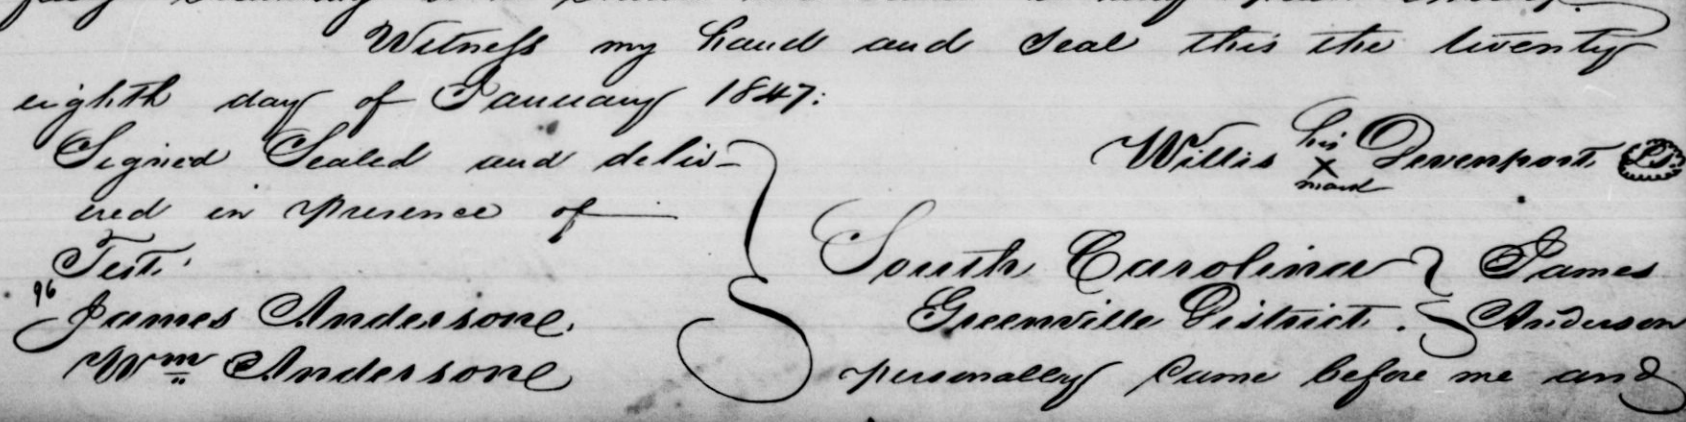 Witness my hand and Seal this the twenty
eighth day of January 1847:
Signed Sealed and deliv-
ered in presence of
Test.
James Anderson.
Wm Anderson
his
Willis X Devenport L.S.
mark
South Carolina } James
Greenville District. } Anderson
personally came before me and